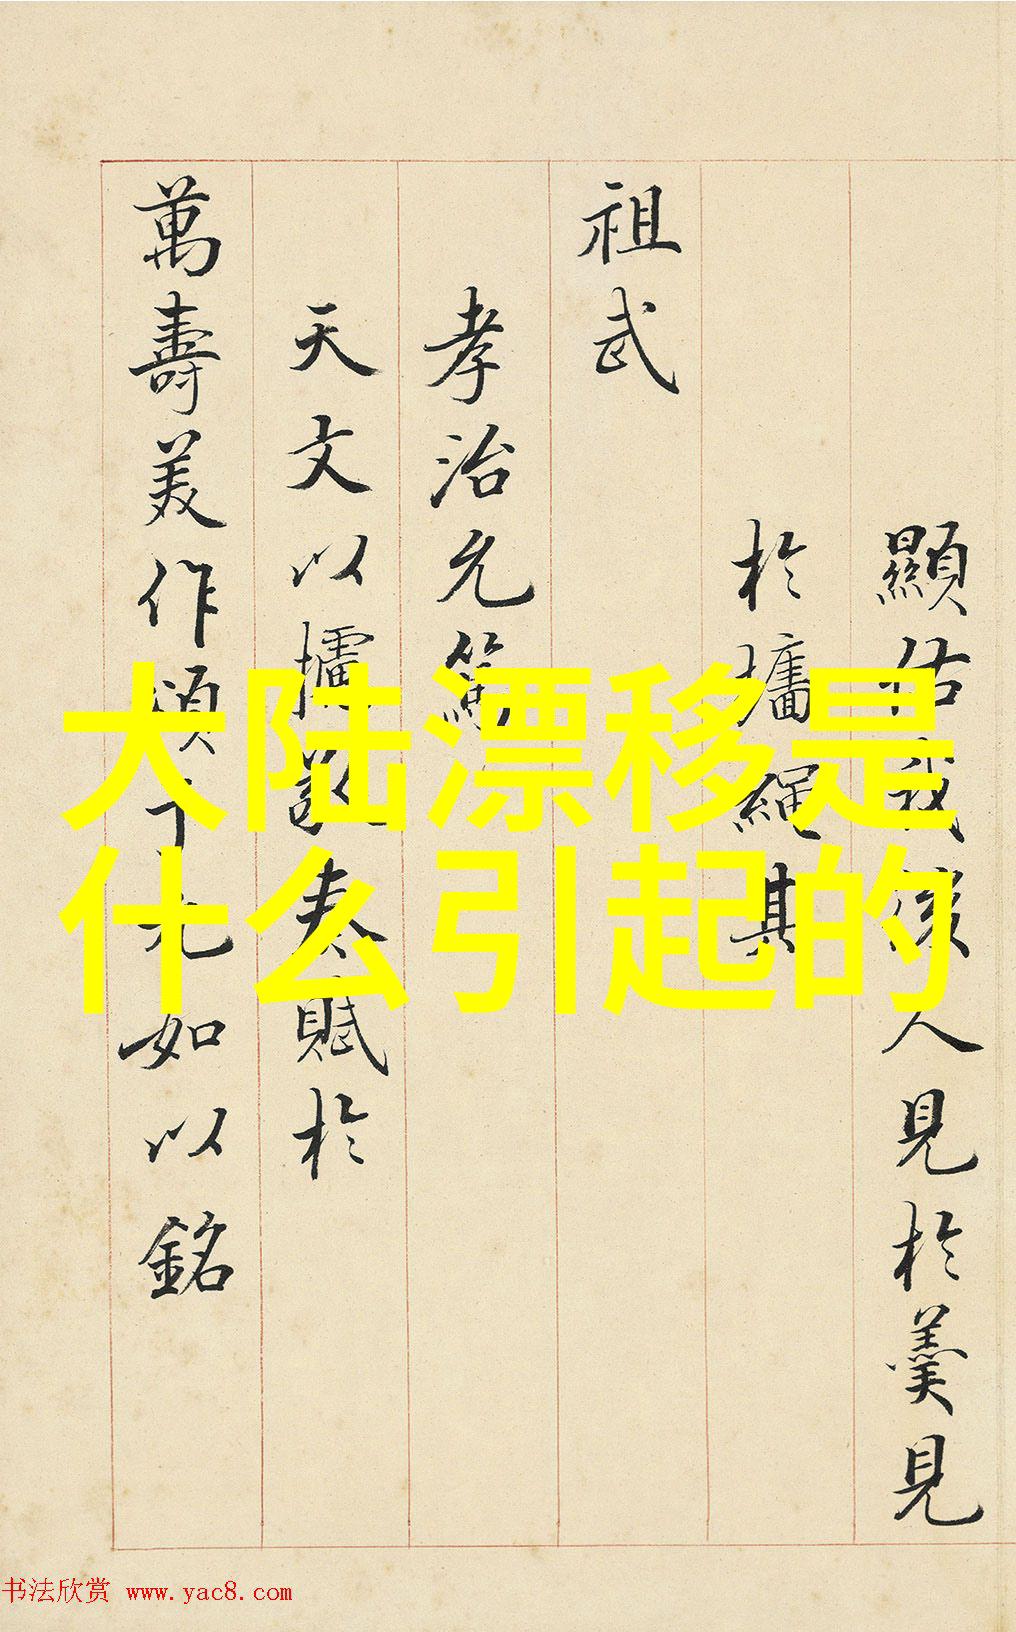 大陆漂移是
什么引起的
顯佑我後人見於羹見
於牆繩其
祖武
孝治允
天文以攄歌奏賦於
萬壽美作頌下九如以銘
书法欣赏 www.yac8.com